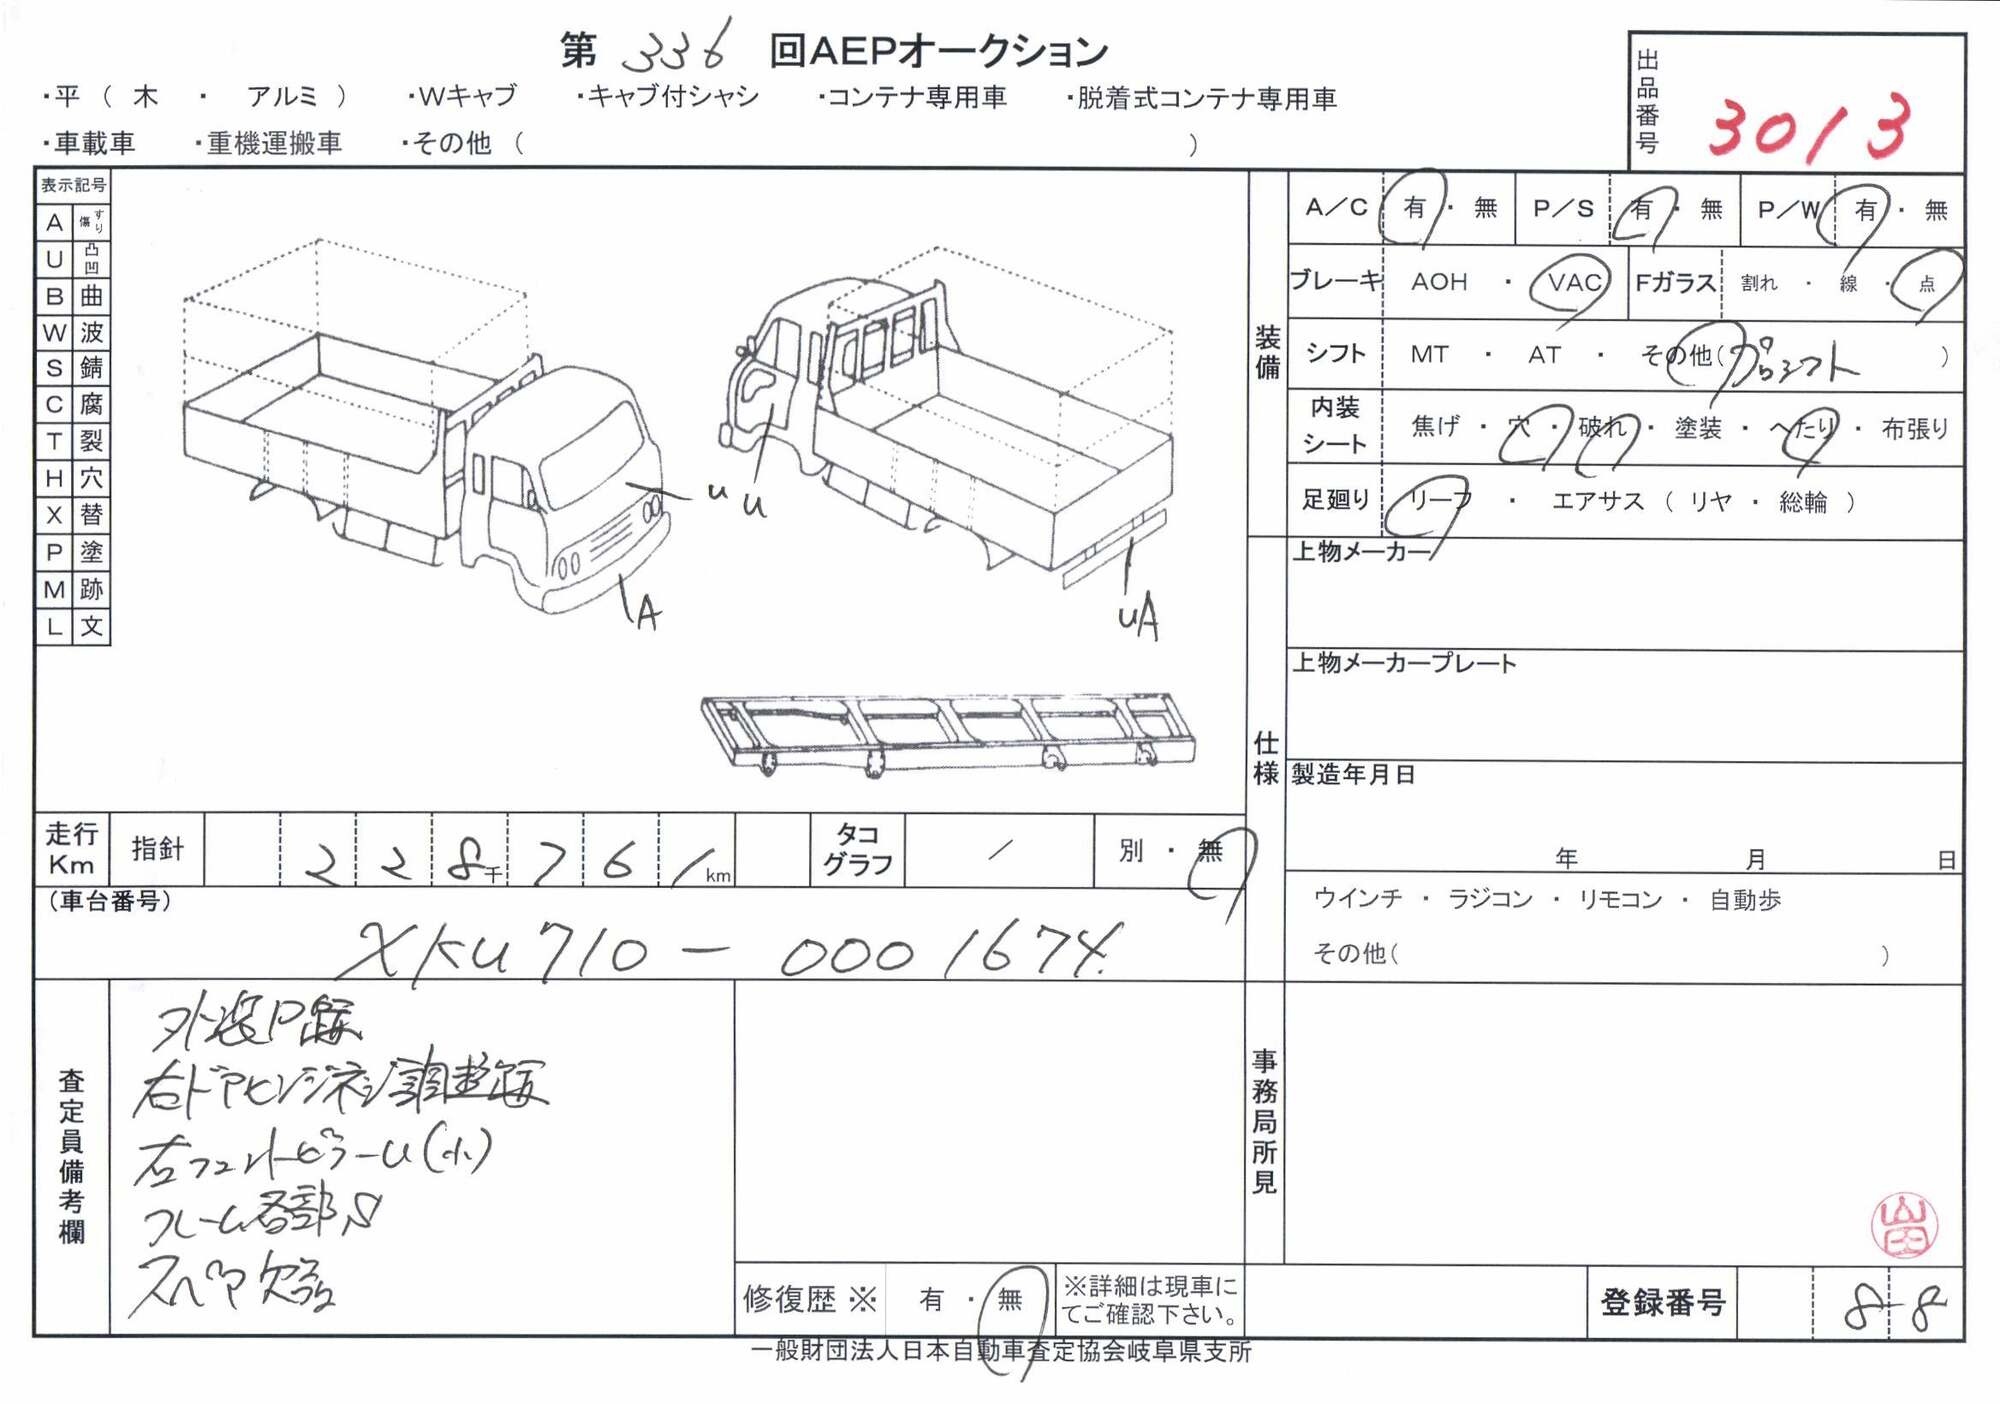 第 336 回AEPオークション
・平 ( 木 ・ アルミ ) ・Wキャブ ・キャブ付シャシ ・コンテナ専用車 ・脱着式コンテナ専用車
・車載車 ・重機運搬車 ・その他 ( )
出品番号 3013
表示記号
A すり傷
U 凸凹
B 曲
W 波
S 錆
C 腐
T 裂
H 穴
X 替
P 塗
M 跡
L 文
u u
A
uA
装備
A/C 有・無 P/S 有・無 P/W 有・無
ブレーキ AOH ・ VAC Fガラス 割れ ・ 線 ・ 点
シフト MT ・ AT ・ その他(プロシフト )
内装シート 焦げ ・ 穴 ・ 破れ ・ 塗装 ・ へたり ・ 布張り
足廻り リーフ ・ エアサス ( リヤ ・ 総輪 )
仕様
上物メーカー
上物メーカープレート
製造年月日
年 月 日
ウインチ ・ ラジコン ・ リモコン ・ 自動歩
その他( )
走行Km 指針 228千761km タコグラフ / 別・無
(車台番号)
XKU710-0001674
査定員備考欄
外装P跡
右ドアヒンジネジ調整跡
右フロントピラーU(小)
フレーム各部S
スペア欠品
修復歴※ 有・無 ※詳細は現車にてご確認下さい。
事務局所見
山田
登録番号 8-8
一般財団法人日本自動車査定協会岐阜県支所